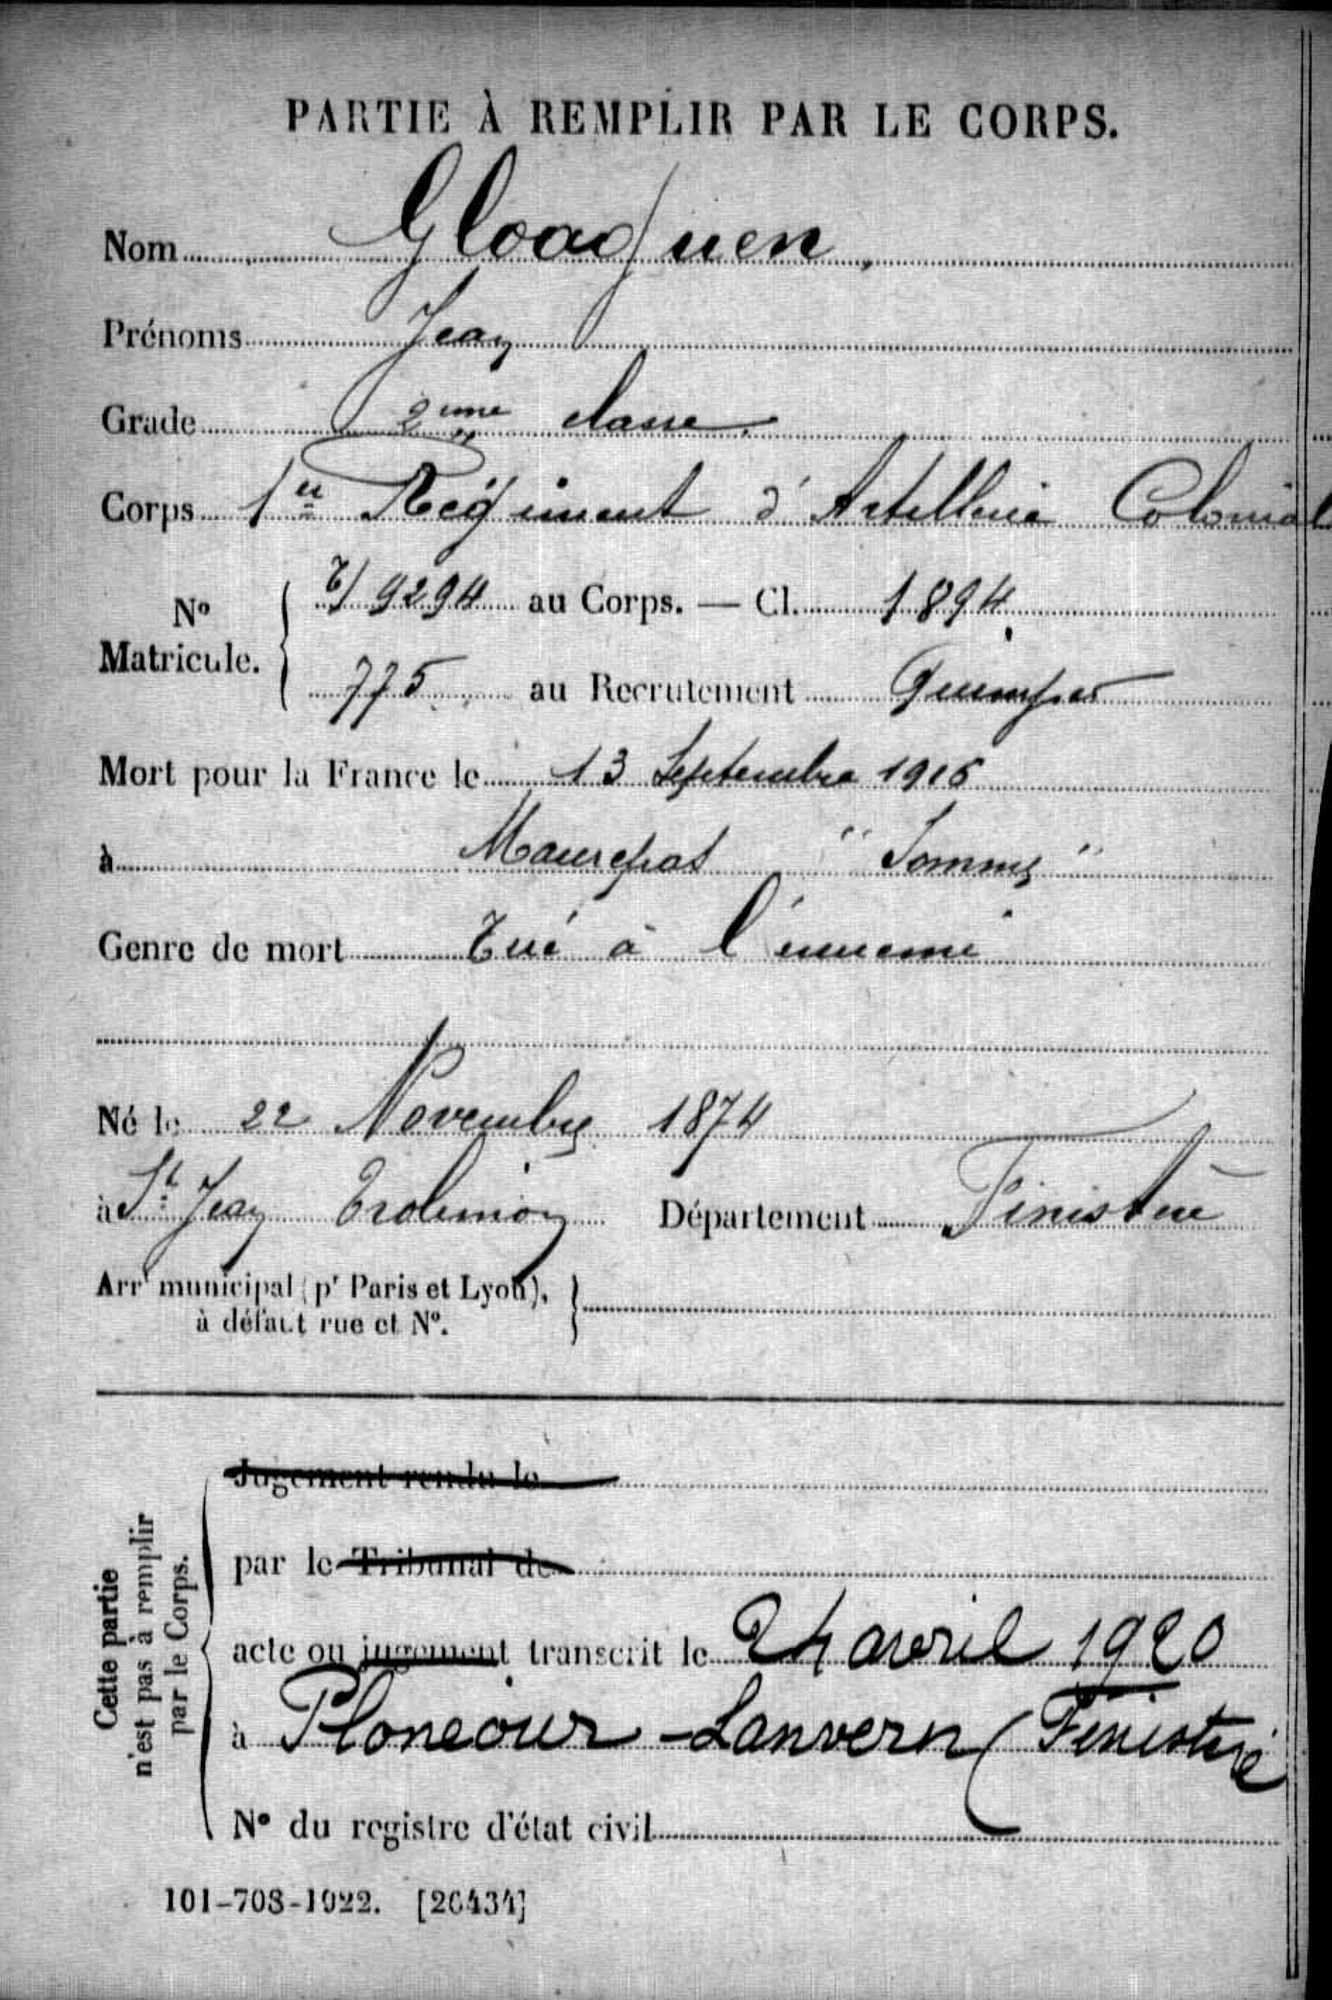 PARTIE À REMPLIR PAR LE CORPS.
Nom Gloaguen
Prénoms Jean
Grade 2ème classe.
Corps 1er Régiment d'Artillerie Colonial
No Matricule. 9294 au Corps. — Cl. 1894.
775 au Recrutement Quimper
Mort pour la France le 13 Septembre 1916
à Maurepas "Somme"
Genre de mort Tué à l'ennemi
Né le 22 Novembre 1874
à St Jean Trolimon Département Finistère
Arrt municipal (pr Paris et Lyon),
à défaut rue et No.
Cette partie
n'est pas à remplir
par le Corps.
Jugement rendu le
par le Tribunal de
acte ou jugement transcrit le 24 avril 1920
à Plonéour-Lanvern (Finistère
No du registre d'état civil
101-708-1922. [26434]